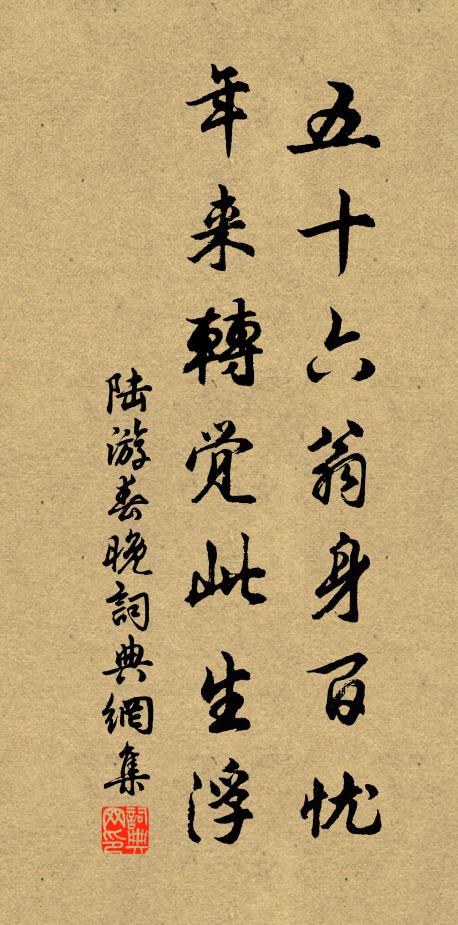 五十六翁身百忧
年来轉觉此生浮
陆游春晚詞典網集
詞典网印